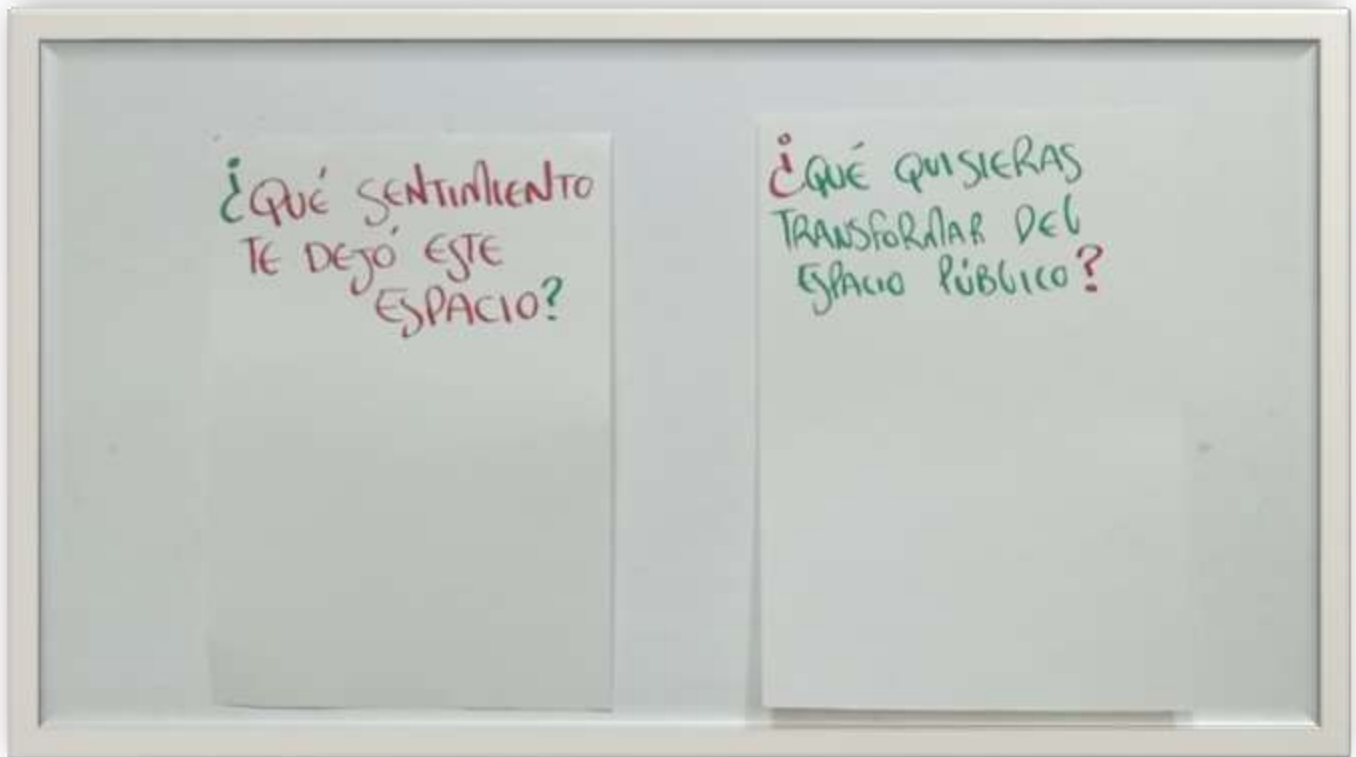 ¿QUÉ SENTIMIENTO
TE DEJÓ ESTE
ESPACIO?
¿QUÉ QUISIERAS
TRANSFORMAR DEL
ESPACIO PÚBLICO?